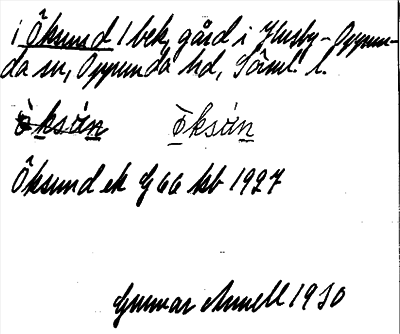 i Öksund 1 bek, gård i Husby-Oppun-
da sn, Oppunda hd, Söml l.
ò̀ksón òksón
Öksund ek G 66 kb 1927
Gunnar Annell 1930